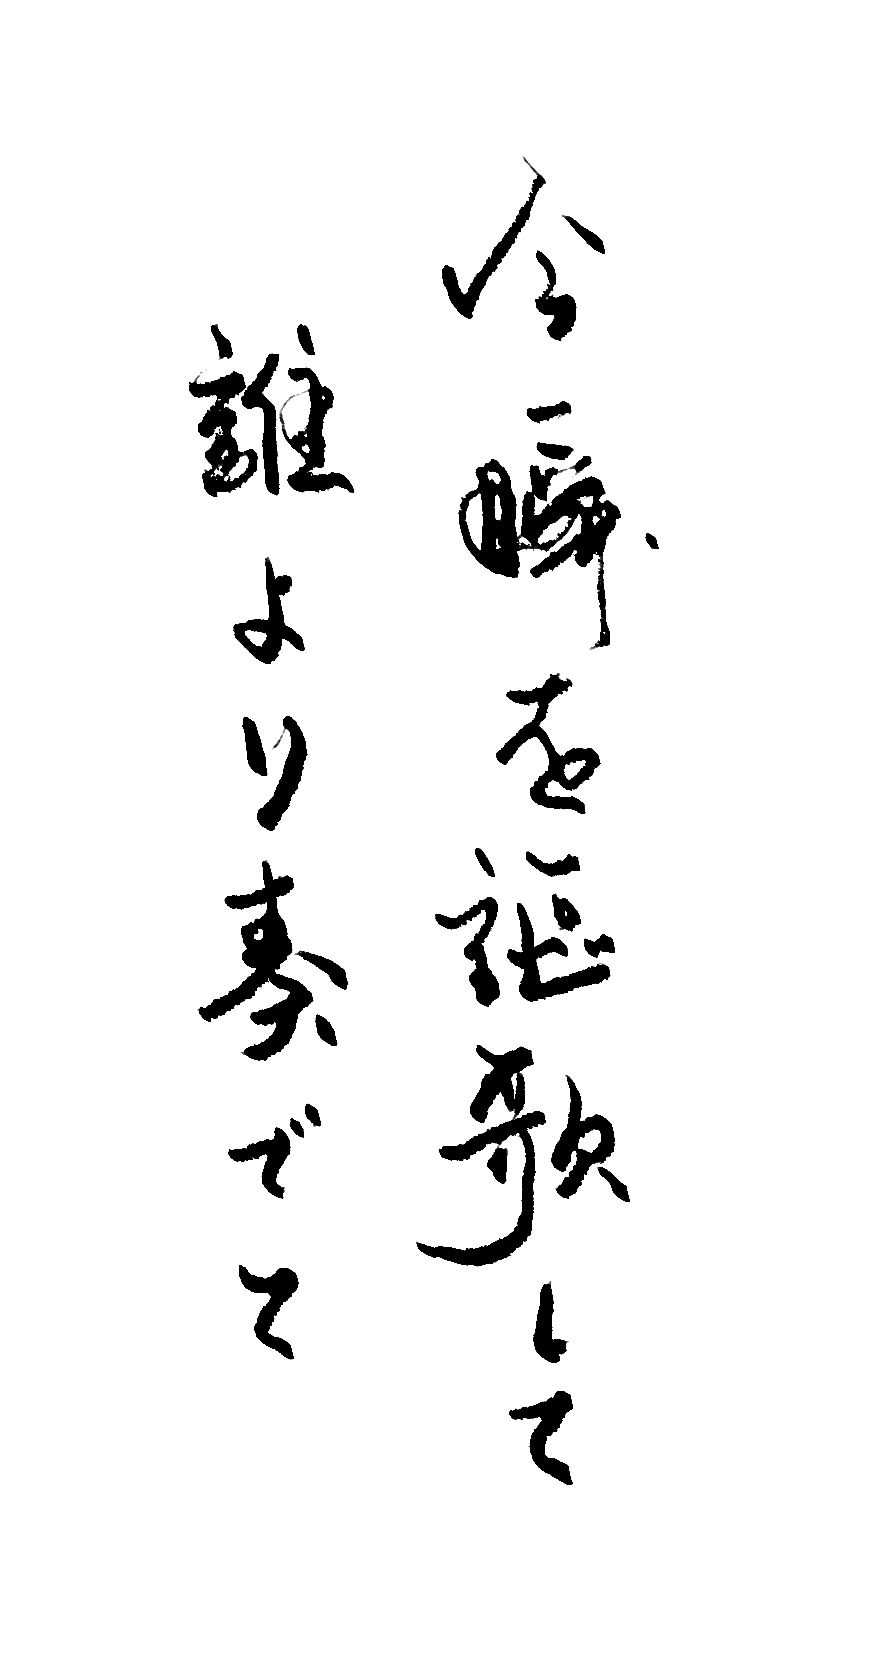 今一瞬を謳歌して
誰より奏でて